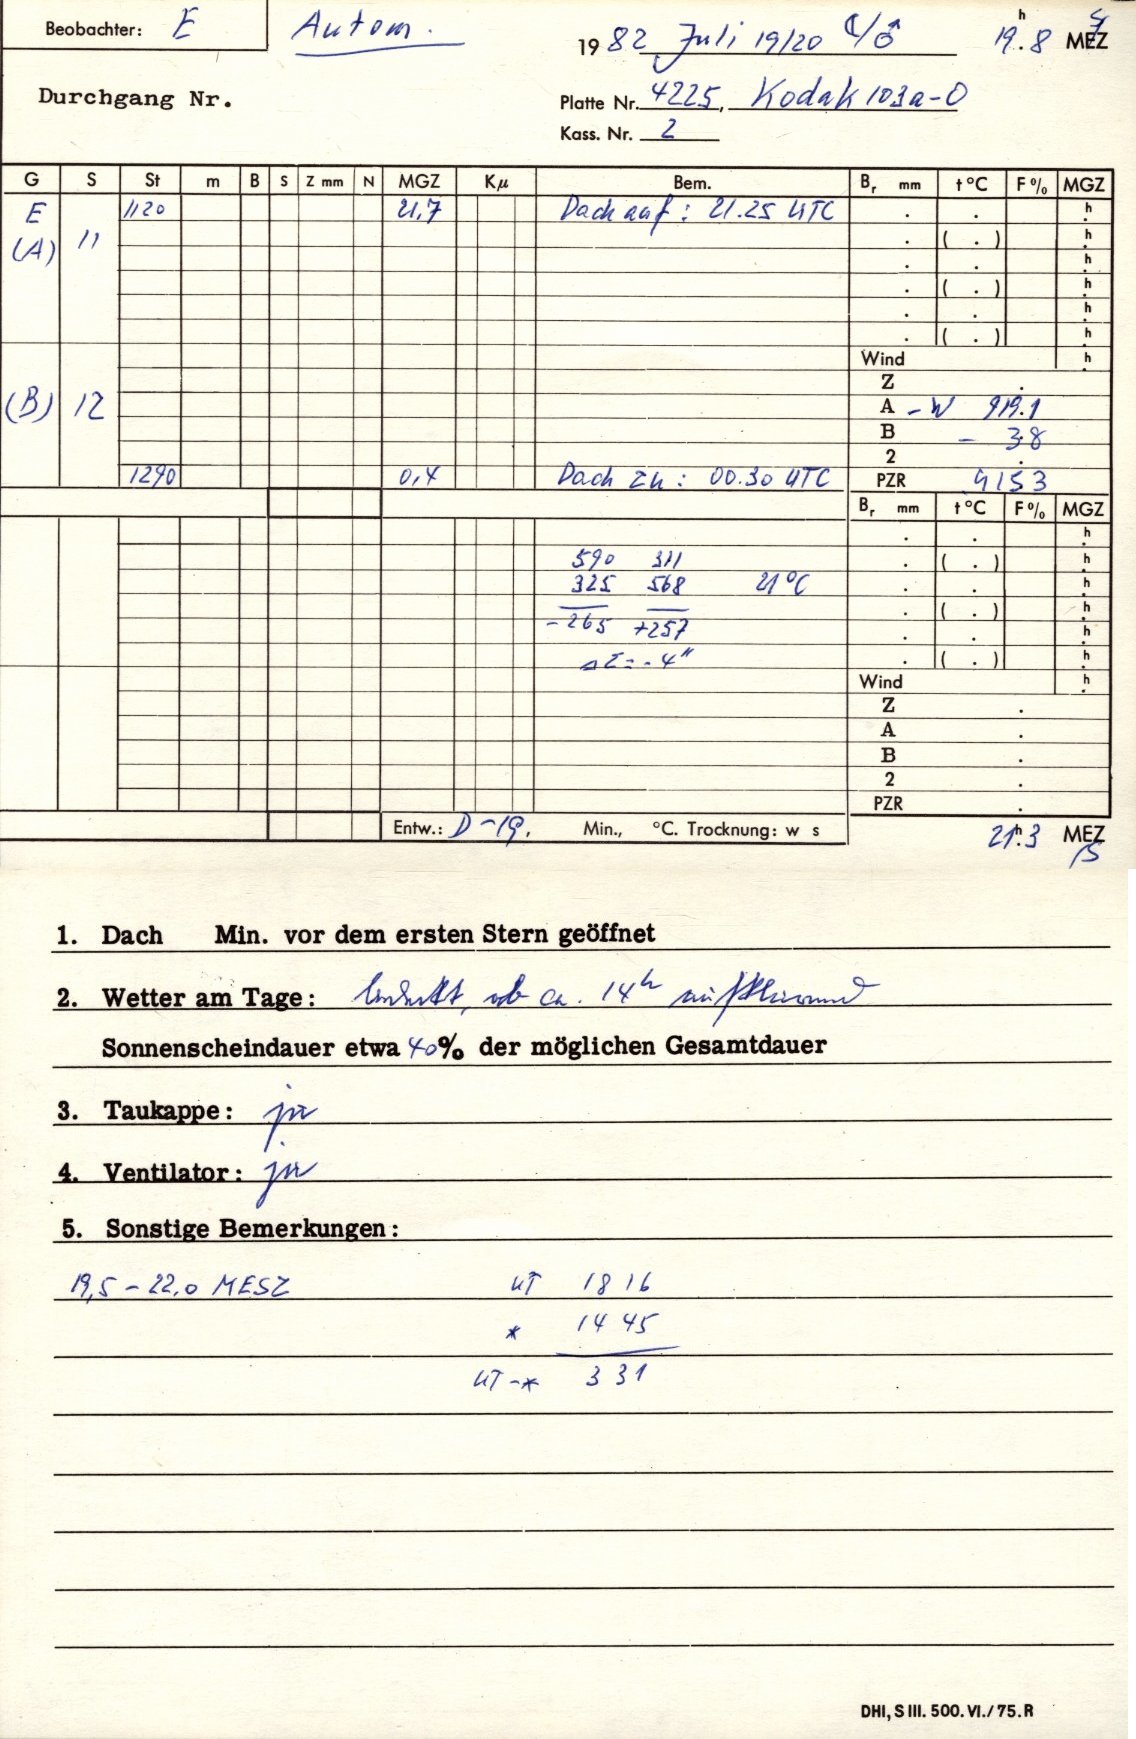 Beobachter: E Autom. 1982 Juli 19/20 ☾/♂ 19h.8 MEZ
Durchgang Nr.
Platte Nr. 4225, Kodak 103a-O
Kass. Nr. 2
G S St m B S Z mm N MGZ Kμ Bem. Br mm t°C F% MGZ
E 1120 21,7 Dach auf: 21.25 UTC . . h.
(A) 11 . ( . ) h.
. . h.
. ( . ) h.
. . h.
. ( . ) h.
Wind h.
Z .
(B) 12 A -W 919.1
B - 3.8
2 .
1290 0,4 Dach zu: 00.30 UTC PZR 9153
Br mm t°C F% MGZ
. . h.
590 311 . ( . ) h.
325 568 21°C . . h.
-265 +257 . ( . ) h.
. . h.
ΔZ=-4" . ( . ) h.
Wind h.
Z .
A .
B .
2 .
PZR .
Entw.: D-19, Min., °C. Trocknung: w s
21h.3 MEZ
1. Dach Min. vor dem ersten Stern geöffnet
2. Wetter am Tage: bedeckt, ab ca. 14h aufklarend
Sonnenscheindauer etwa 40% der möglichen Gesamtdauer
3. Taukappe: ja
4. Ventilator: ja
5. Sonstige Bemerkungen:
19,5 - 22.0 MESZ UT 18 16
* 14 45
UT-* 3 31
DHI, S III. 500. VI./75. R